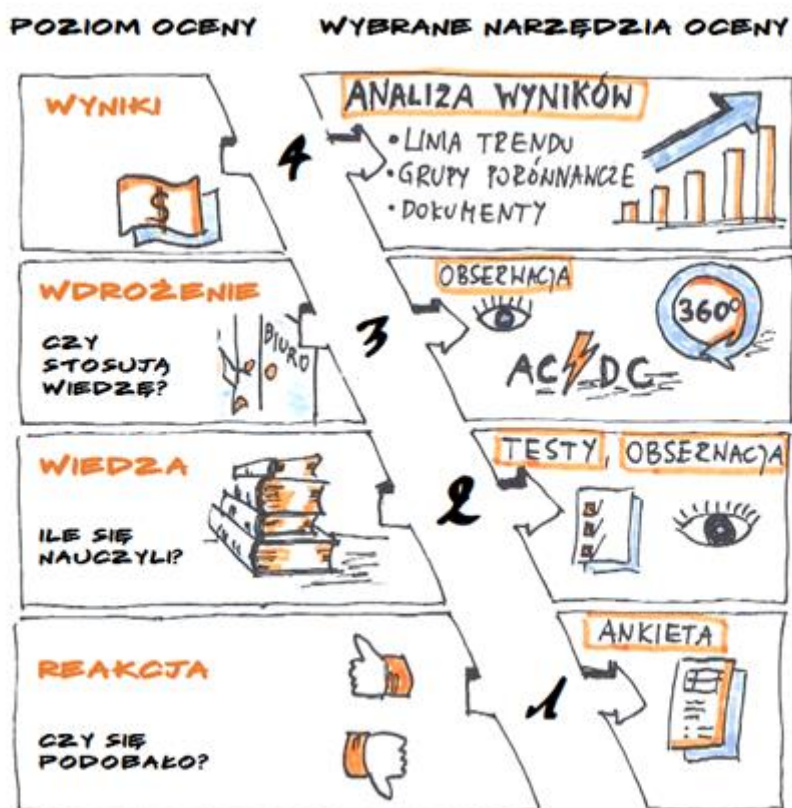 POZIOM OCENY
WYBRANE NARZĘDZIA OCENY
WYNIKI
$
4
ANALIZA WYNIKÓW
• LINIA TRENDU
• GRUPY PORÓWNAWCZE
• DOKUMENTY
WDROŻENIE
CZY
STOSUJĄ
WIEDZĘ?
BIURO
3
OBSERWACJA
360°
AC⚡DC
WIEDZA
ILE SIĘ
NAUCZYLI?
2
TESTY, OBSERWACJA
REAKCJA
CZY SIĘ
PODOBAŁO?
1
ANKIETA